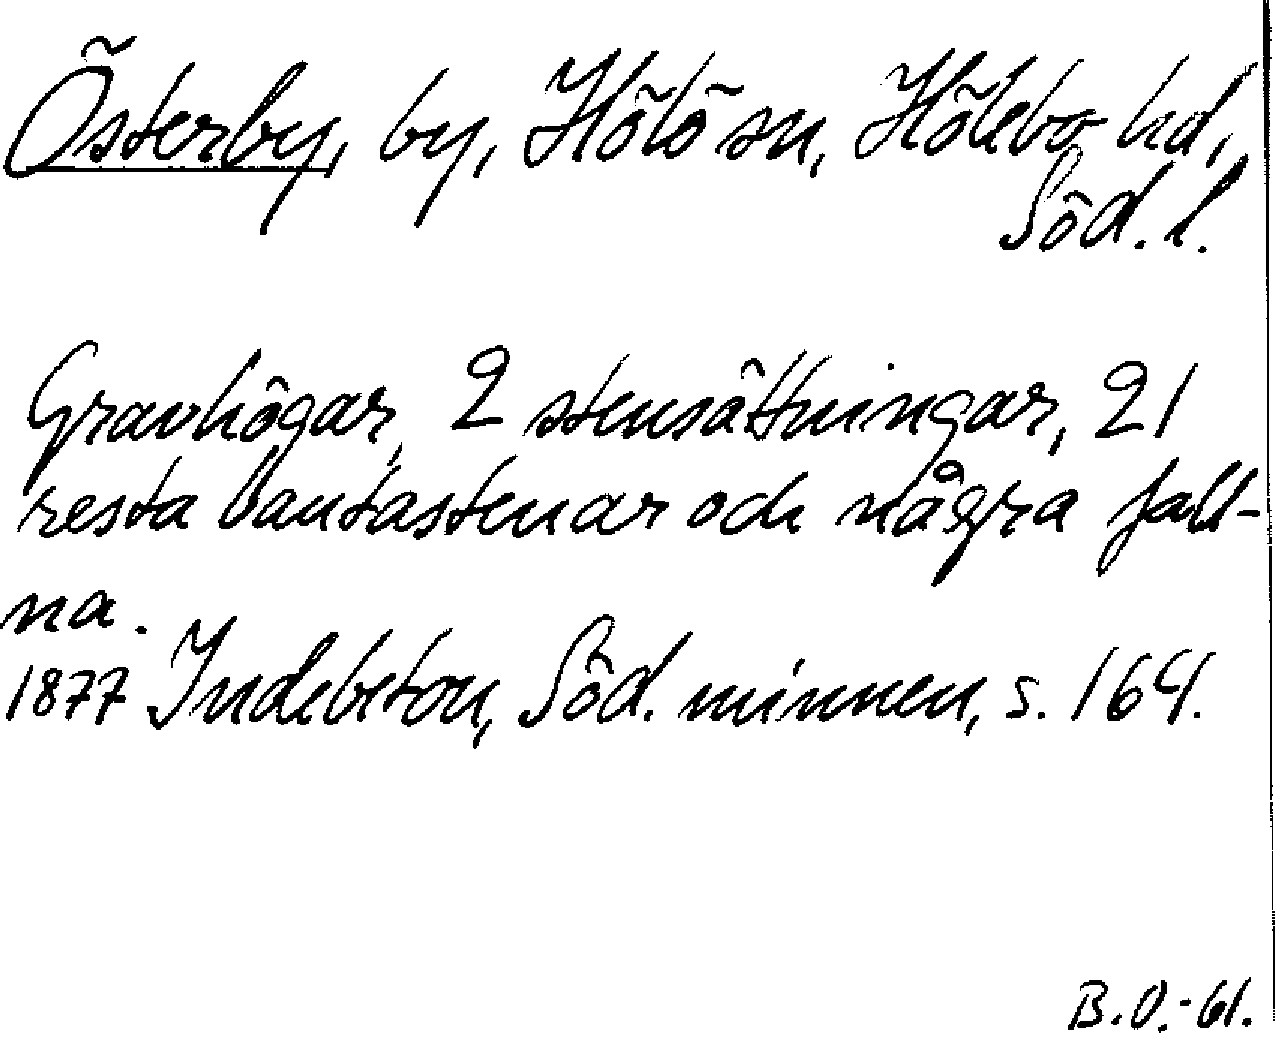 Österby, by, Hölö sn, Hölebo hd,
Söd. l.
Gravhögar, 2 stensättningar, 21
resta bautastenar och några fall-
na.
1877 Indebetou, Söd. minnen, s. 164.
B.O.-61.